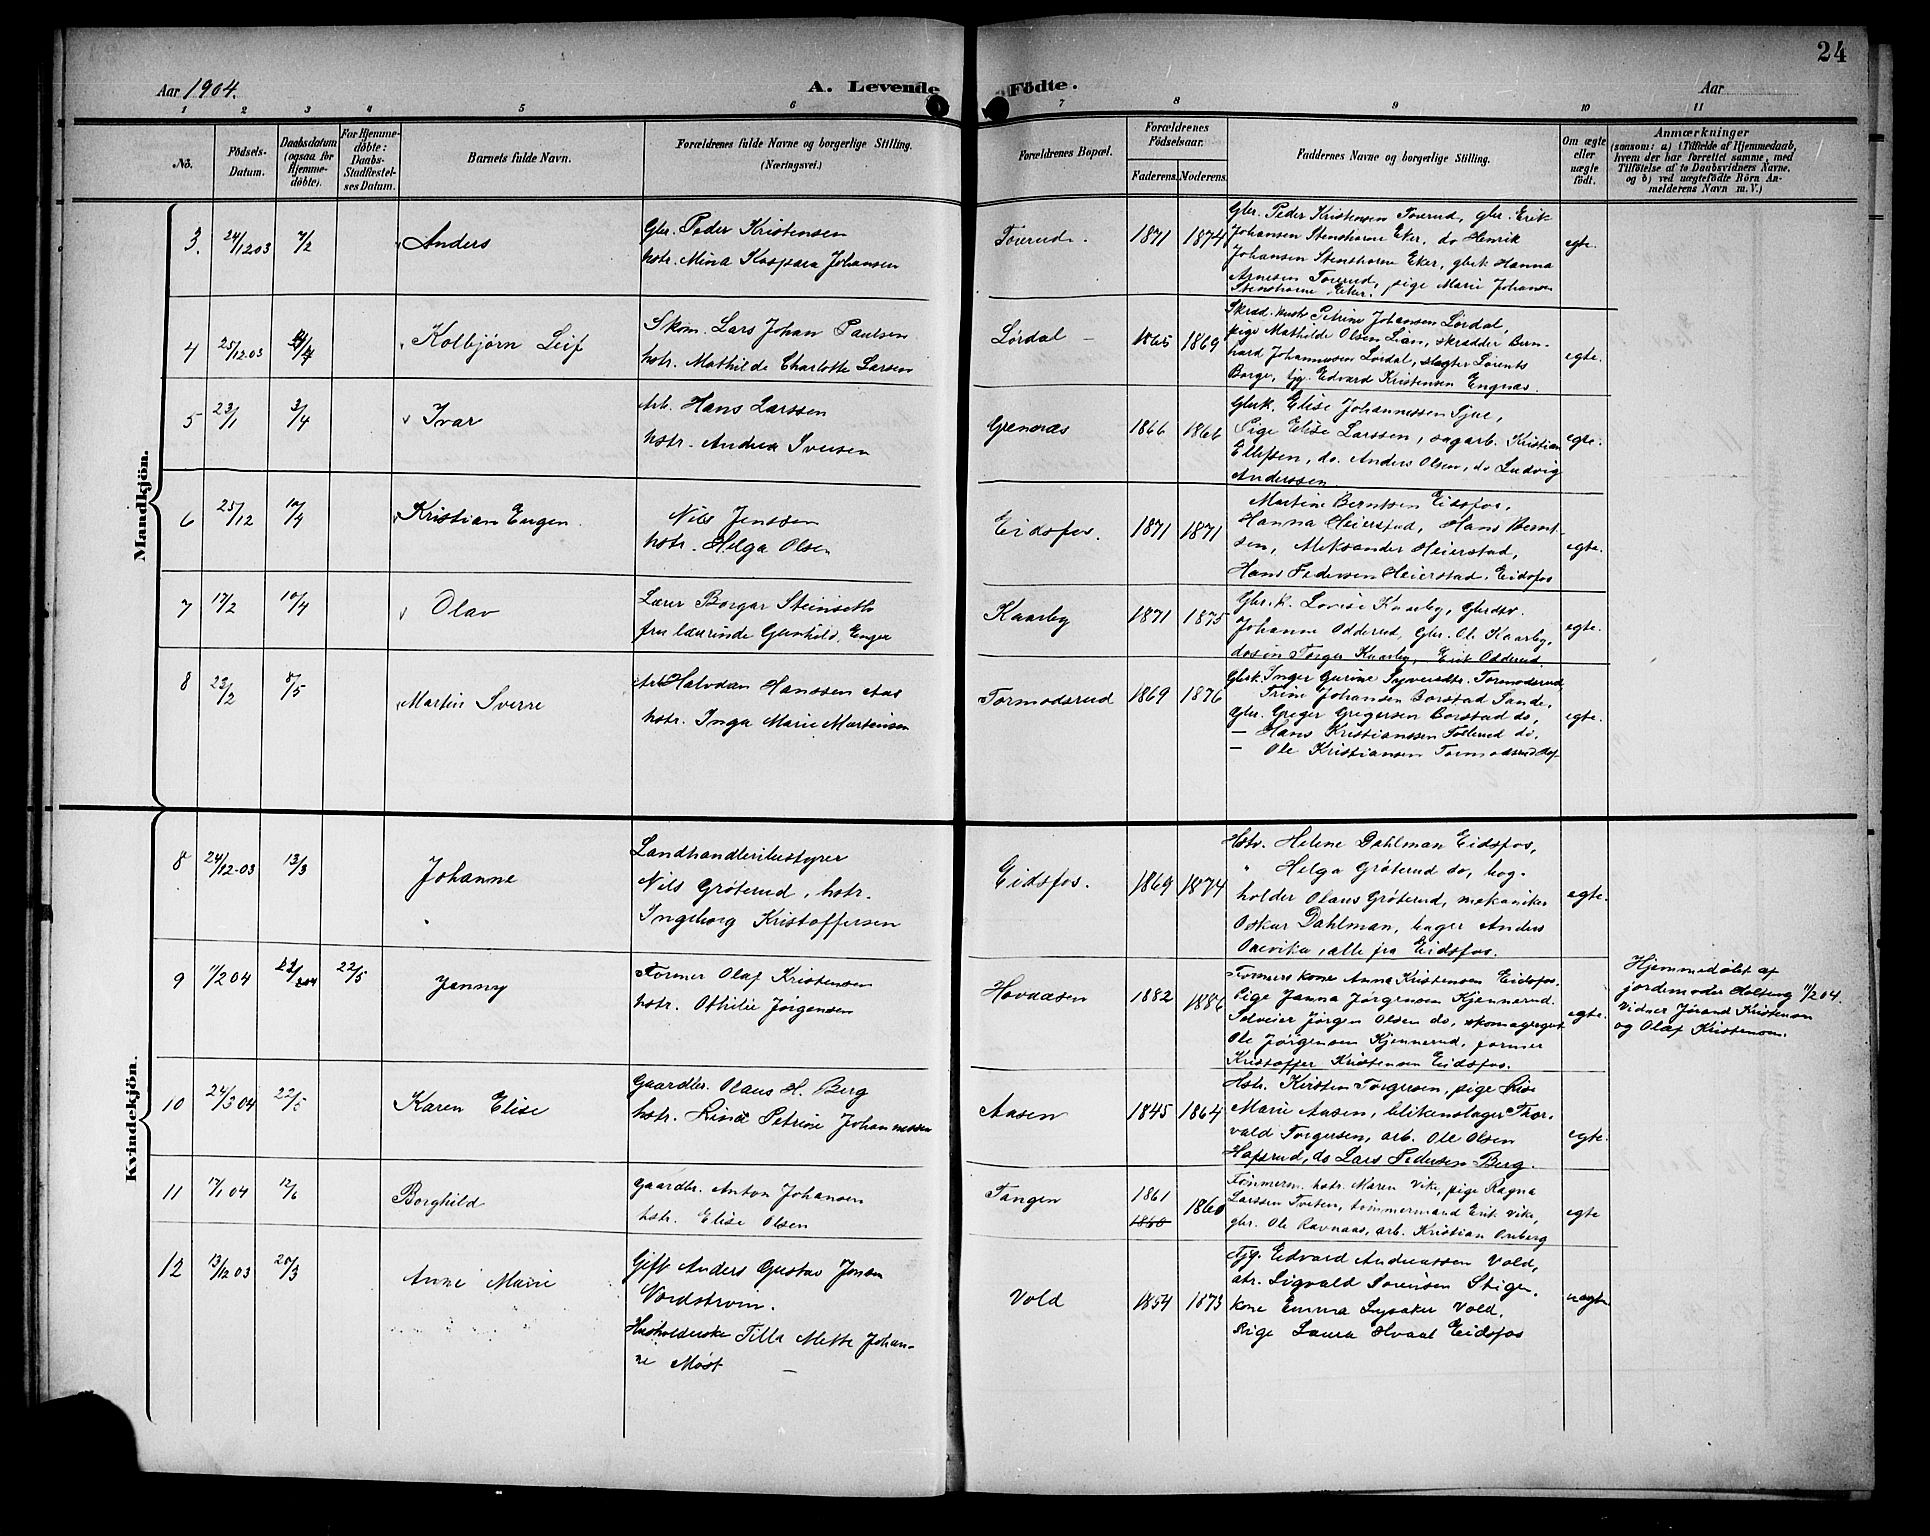 24
Aar 1904.
A. Levende Födte.
Aar
1 2 3 4 5 6 7 8 9 10 11
No.
Födsels-Datum.
Daabsdatum (ogsaa for Hjemme-döbte).
For Hjemme-döbte: Daabs-Stadfæstel-ses Datum.
Barnets fulde Navn.
Forældrenes fulde Navne og borgerlige Stilling.
(Næringsvei.)
Forældrenes Bopæl.
Forældrenes Födselsaar.
Faderens. Moderens.
Faddernes Navne og borgerlige Stilling.
Om ægte eller uægte födt.
Anmærkninger
(saasom: a) i Tilfælde af Hjemmedaab,
hvem der har forrettet samme, med
Tilföielse af to Daabsvidners Navne,
og b) ved uægtefödte Börn An-
melderens Navn m. V.)
Mandkjön.
3. 24/12 03 7/2 Anders
Gbr. Peder Kristensen
hstr. Mina Kaspara Johansen
Tourud. 1871 1874
Gbr. Peder Kristensen Tourud, gbr. Erik
Johansen Stenshorne Eker, do Henrik
Johansen Stenshorne Eker, gbrk Hanna
Arnesen Tourud, pige Marie Johansen
Stenshorne Eker.
egte.
4 25/12 03 Kolbjørn Leif
Skom. Lars Johan Paulsen
hstr. Mathilde Charlotte Larsen
Lørdal 1865 1869
Skrad. hustr Petrine Johansen Lørdal,
pige Mathilde Olsen Lian, skrædder Bern-
hard Johannesen Lørdal, slagter Lorents
Borge, tjg. Edvard Kristensen Engnæs.
egte.
5 23/1 3/4 Ivar
Arb. Hans Larssen
hstr. Andrea Iversen
Grennæs 1866 1866
Gbrk. Elise Johannessen
Pige Elise Larssen, sagarb. Kristian
Ellefsen, do. Anders Olsen, do Ludvig
Anderssen
egte.
6 25/12 10/4 Kristian Eugen.
Nils Jenssen
hstr. Helga Olsen
Eidsfos. 1871 1871
Martine Berntsen Eidsfos,
Hanna Heierstad, Hans Bernt-
sen, Aleksander Heierstad,
Hans Pedersen Heierstad, Eidsfos
egte.
7 17/2 10/4 Olav
Lærer Borgar Steinseth
fru Laurinde Gunhild Enger
Kaarby 1871 1875
Gbr.k. Lovise Kaarby, Gbrdtr.
Johanne Odderud, Gbr. Ole Kaarby,
do søn Torger Kaarby, Erik Odderud.
egte.
8 23/2 8/5 Martin Sverre
Arb Halvdan Hanssen Aas
hstr. Inga Marie Martinsen
Tormodsrud 1869 1876
Gbrk. Inger Gurine Syversdtr. Tormodsrud,
Trine Johansen Borstad Sande,
Gbr. Greger Gregersen Borstad do,
— Hans Kristianssen Tollerud do,
— Ole Kristiansen Tormodsrud
egte.
Kvindekjön.
8 24/12-03 13/3 Johanne
Landhandleribestyrer
Nils Grøterud, hstr.
Ingeborg Kristoffersen
Eidsfos. 1869 1874
Hstr. Helene Dahlman Eidsfos,
" Helga Grøterud do, bog-
holder Olaus Grøterud, mekaniker
Oskar Dahlman, bager Anders
alle fra Eidsfos.
egte.
9 11/2 04 22/5 Jenny
Former Olaf Kristensen
hstr. Othilie Jørgensen
Hovdaasen 1882 1886
Formers kone Anna Kristensen Eidsfos,
Pige Janna Jørgensen Kjennerud.
Selveier Jørgen Olsen do, skomagergut
Ole Jørgensen Kjennerud, former
Kristoffer Kristensen Eidsfos.
egte.
Hjemmedøbt af
jordemoder Holtung 11/2 04.
Vidner Jørand Kristensen
og Olaf Kristensen.
10 24/3 04 22/5 Karen Elise
Gaardbr. Olaus H. Berg
hstr. Lina Petrine Johannessen
Aasen 1845 1864
Hstr. Kirsten Torgersen, pige Lise
Marie Aasen, blikenslager Thor-
vald Torgersen, arb. Ole Olsen
Hafsrud, do Lars Pedersen Berg.
egte.
11 17/1 04 12/6 Borghild
Gaardbr. Anton Johansen
hstr. Elise Olsen
Tangen 1861 1860 1860
Tømmerm. hstr. Maren Vike, pige Ragna
Larssen Tveten, tømmermand Erik Vike,
gbr. Ole Ravnaas, arb. Kristian
egte
12 13/12 03 20/3 Anne Marie
Gift Anders Gustav Jonsen
Nordstrøm.
Husholderske Tilla Mette Johan-
ne Most —
Vold 1854 1873
Tjg. Edvard Andreassen Vold,
Sigvald Sørensen Stigen,
kone Emma Lysaker Vold,
Pige Laura Hvaal Eidsfos
uægte